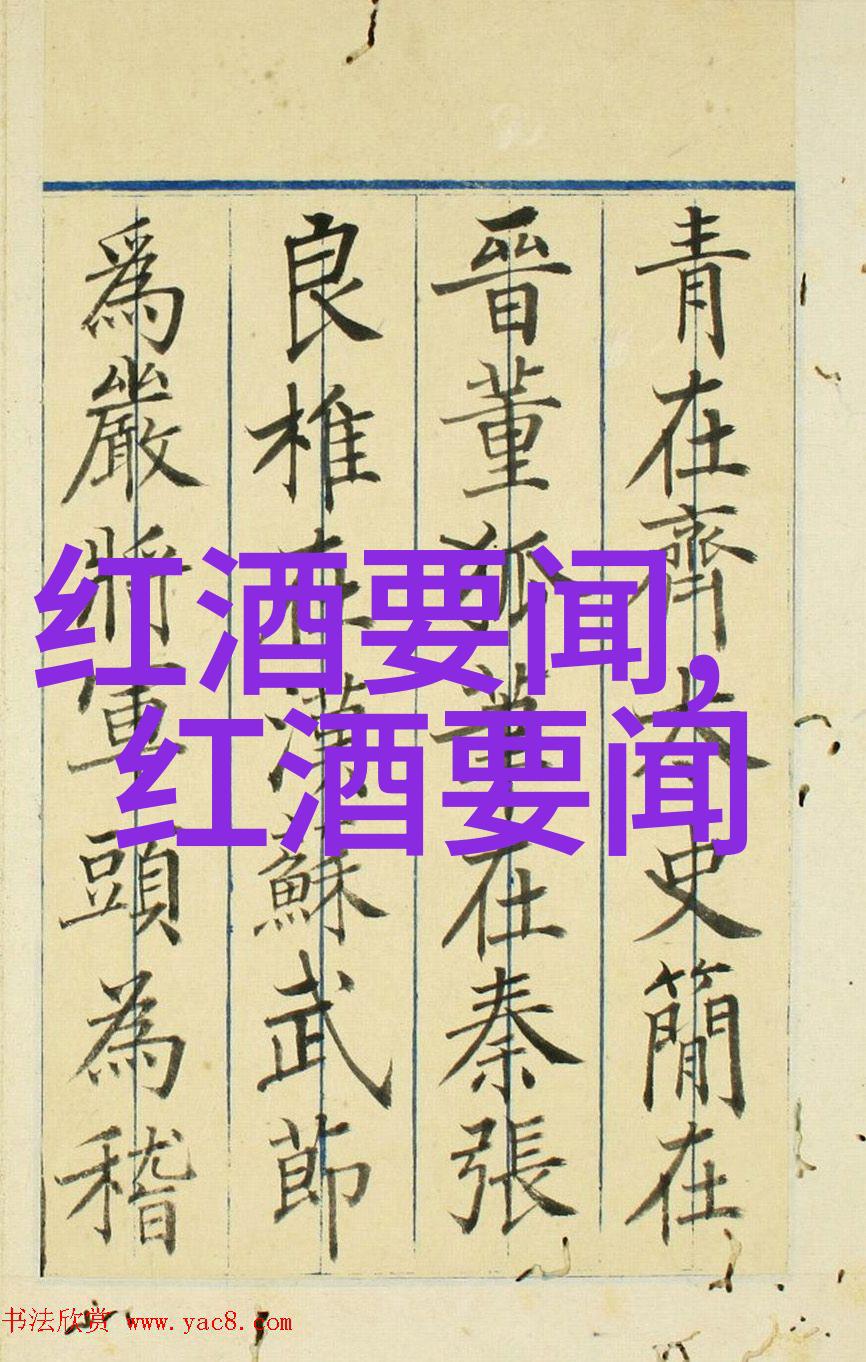 青在齊太史簡在
晉董狐筆在秦張
良椎在漢蘇武節
爲嚴將軍頭為稽
红酒要闻,
红酒要闻
书法欣赏 www.yac8.com